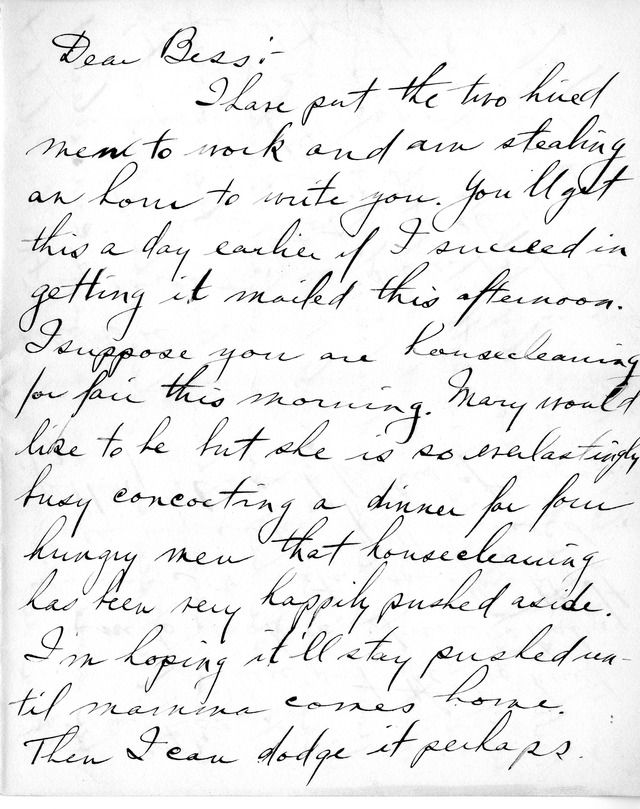 Dear Bess:-
I have put the two hired
men to work and am stealing
an hour to write you. You'll get
this a day earlier if I succeed in
getting it mailed this afternoon.
I suppose you are housecleaning
for fair this morning. Mary would
like to be but she is so everlastingly
busy concocting a dinner for four
hungry men that housecleaning
has been very happily pushed aside.
I'm hoping it'll stay pushed un-
til mamma comes home.
Then I can dodge it perhaps.